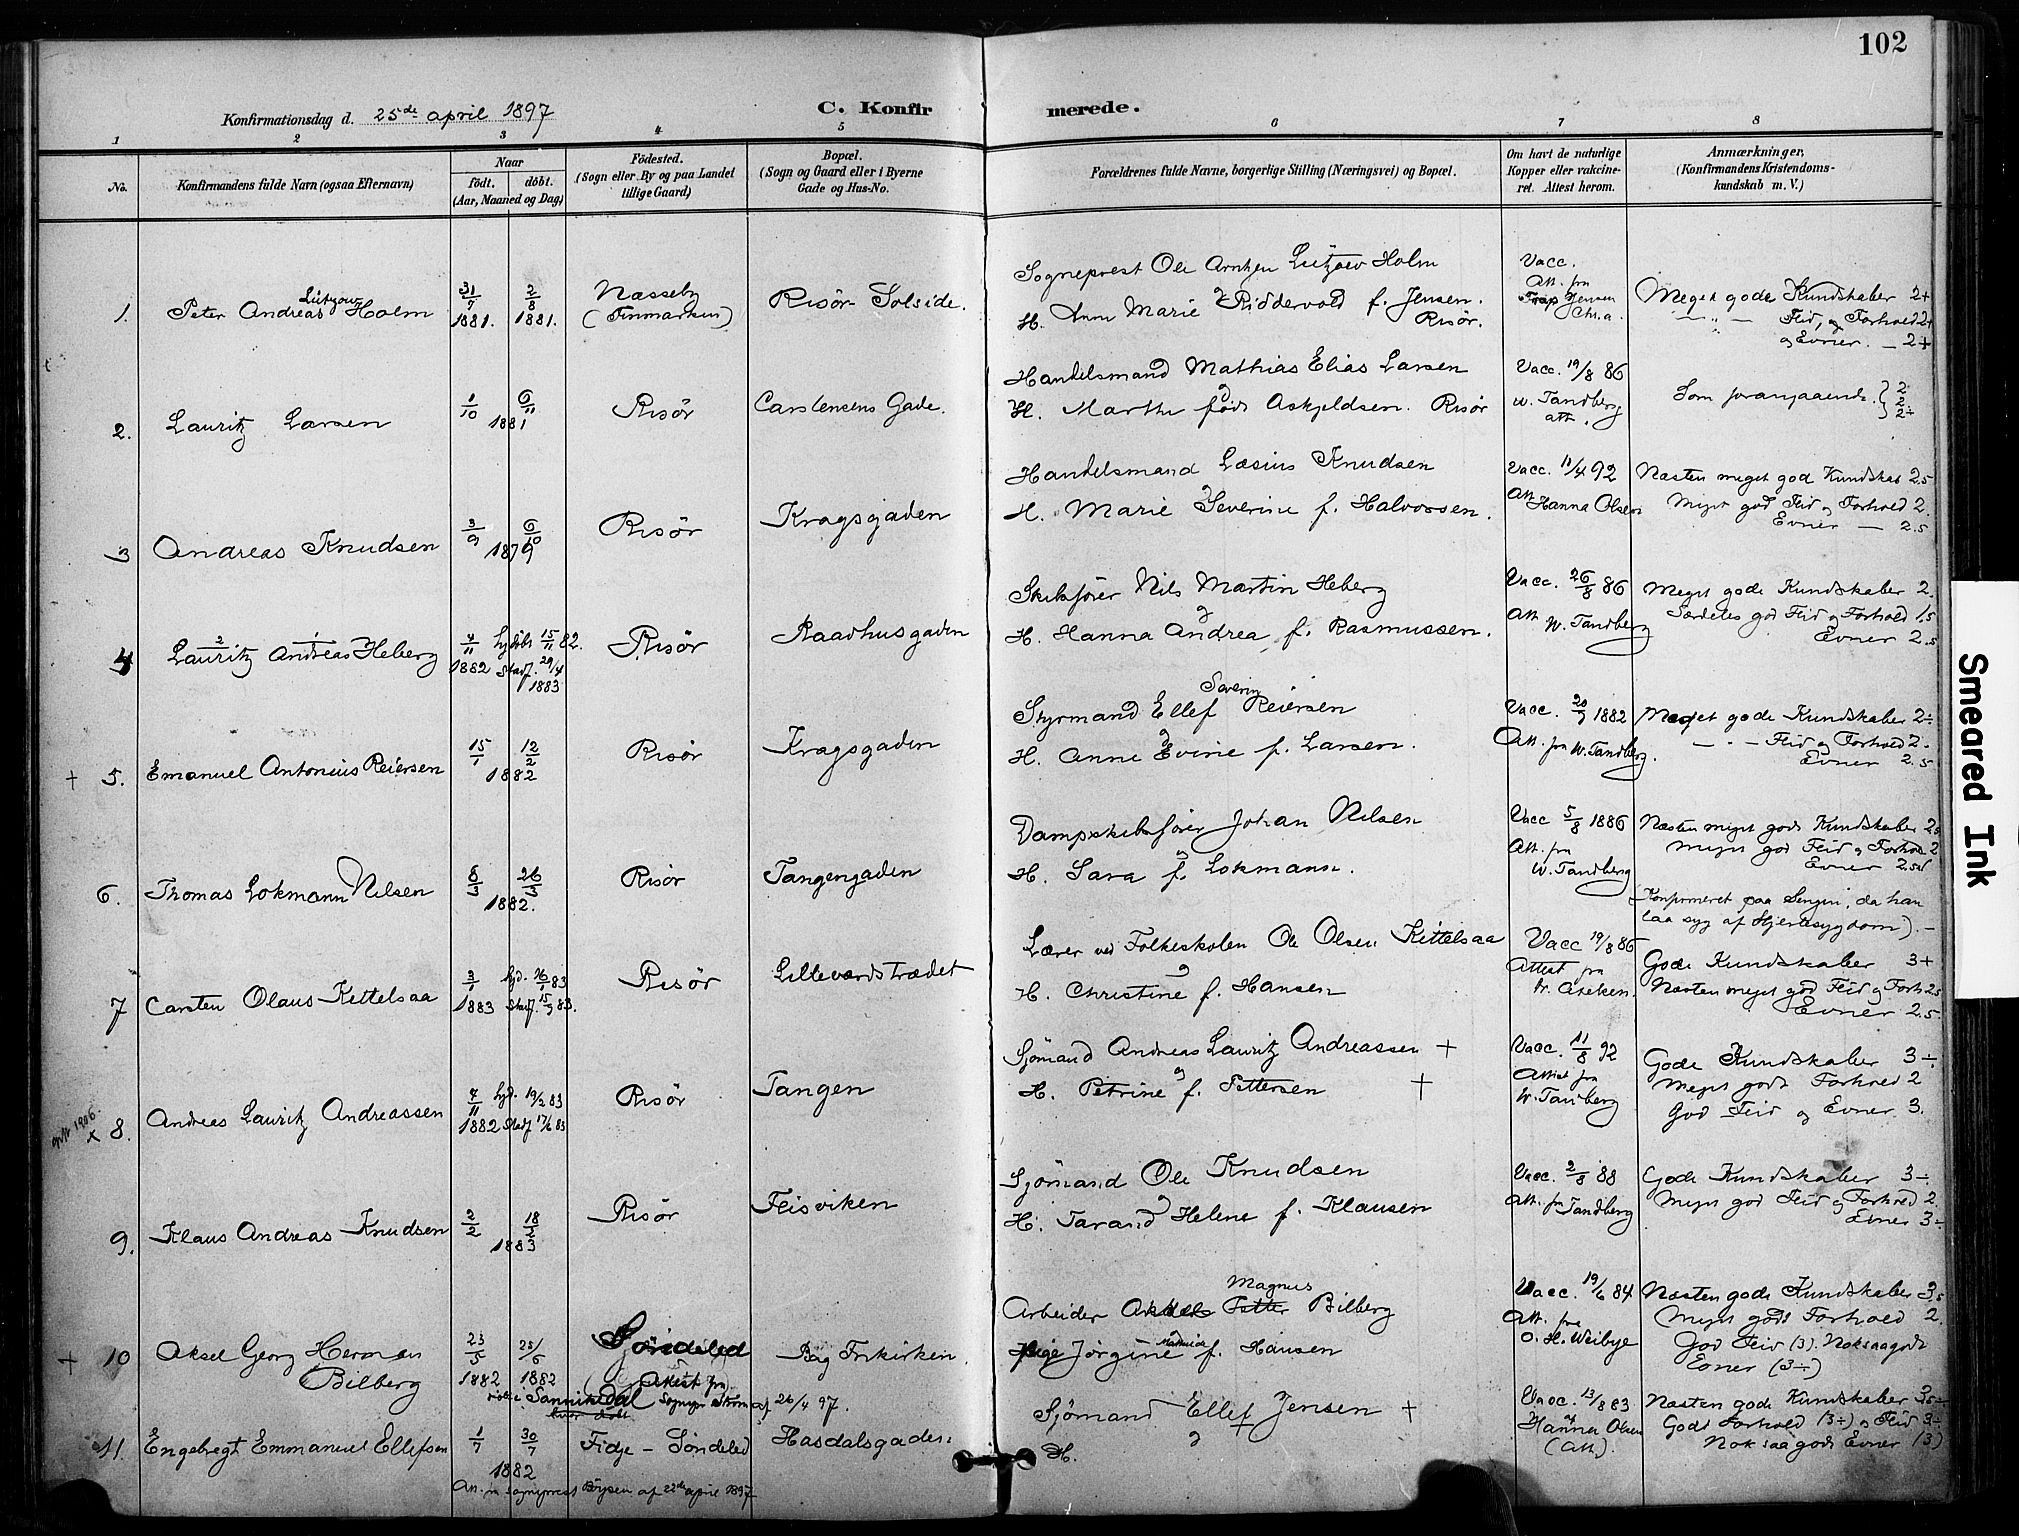 102
Konfirmationsdag d. 25de april 1897
C. Konfirmerede.
1 2 3 4 5 6 7 8
No.
Konfirmandens fulde Navn (ogsaa Efternavn)
Naar
födt. döbt.
(Aar, Maaned og Dag)
Födested.
(Sogn eller By og paa Landet
tillige Gaard)
Bopæl.
(Sogn og Gaard eller i Byerne
Gade og Hus-No.
Forældrenes fulde Navne, borgerlige Stilling (Næringsvei) og Bopæl.
Om havt de naturlige
Kopper eller vakcine-
ret. Attest herom.
Anmærkninger,
(Konfirmandens Kristendoms-
kundskab m. V.)
1. Peter Andreas Lützow Holm 31/7 1881. 2/8 1881. Nesseby (Finmarken) Risör Solside.
Sogneprest Ole Arntzen Lützow Holm
& H. Anna Marie Riddervold f. Jensen. Risör.
Vacc. Att. fra Jensen Chr.a
Meget gode Kundskaber 2+
— " — Flid, og Forhold 2+
og Evner. — 2+
2. Lauritz Larsen 1/10 6/11 1881 Risör Carstensens Gade.
Handelsmand Mathias Elias Larsen
& H. Marthe född Askjeldsen. Risör
Vacc. 19/8 86
W. Tandberg att.
Som foregaaende. 2 2 2÷
3 Andreas Knudsen 3/9 6/10 1879 Risör Kragsgaden
Handelsmand Læsius Knudsen
& H. Marie Severine f. Halvorsen.
Vacc. 11/4 92
Att. Hanna Olsen
Næsten meget god Kundskab 2.5
Meget god Flid og Forhold 2.
Evner — 2.5
4 Lauritz Andreas Heberg 4/11 1882 hjdöbt 15/11 82. Stadf. 29/4 1883 Risör Raadhusgaden
Skibsförer Nils Martin Heberg
& H. Hanna Andrea f. Rasmussen.
Vacc. 26/8 86
Att W. Tandberg
Meget gode Kundskaber 2.
Særdeles god Flid og Forhold 1.5
Evner 2.5
+ 5. Emanuel Antonius Reiersen 15/1 12/2 1882 Risör Kragsgaden
Styrmand Ellef Severin Reiersen
& H. Anne Evine f. Larsen.
Vacc. 20/7 1882
Att. fra W. Tandberg.
Meget gode Kundskaber 2÷
— " — Flid og Forhold 2.
Evner 2.5
6. Thomas Lokmann Nilsen 8/3 26/3 1882. Risör Tangengaden
Dampskibsförer Johan Nilsen
& H. Sara f. Lokmann.
Vacc 5/8 1886
Att. fra W. Tandberg
Næsten meget gode Kundskaber 2.5
Meget god Flid og Forhold 2
Evner 2.5
(Konfirmeret paa Sengen, da han
laa syg af Hjertesygdom). —
7 Carsten Olaus Kittelsaa 3/1 1883 hjd. 26/1 83 Stadf. 15/7 83. Risör Lilleværdstrædet
Lærer ved Folkeskolen Ole Olsen Kittelsaa
& H. Christine f. Hansen
Vacc 19/8 86
Attest fra
Gode Kundskaber 3+
Næsten meget god Flid og Forh 2.5
Evner 2.5.
x 8. Andreas Lauritz Andreassen 7/11 1882 hjd. 19/2 83 Stadf 17/6 83 Risör Tangen
Sjömand Andreas Lauritz Andreassen +
& H. Petrine f. Pettersen +
Vacc. 11/8 92
Attest fra
W. Tandberg
Gode Kundskaber 3÷
Meget godt Forhold 2
God Flid og Evner 3.
9. Klaus Andreas Knudsen 2/2 18/2 1883 Risör Flisviken
Sjömand Ole Knudsen
& H. Tarand Helene f. Klausen
Vacc. 2/8 88
Att. fra Tandberg
Gode Kundskaber 3÷.
Meget god Flid og Forhold 2
Evner 3÷
+ 10 Aksel Georg Herman Bilberg 23/5 1882 25/6 1882 Söndeled (Attest fra) Bag Frikirken.
Sannikedal Sognepr Ström af 26/4 97.
Arbeider Magnus Bilberg
Pige Jörgine Mathilde f. Hansen
Vacc. 19/6 84
Att. fra
O. H. Weibye
Næsten gode Kundskaber 3.5
Meget godt Forhold 2.
God Flid (3). Noksaagode
Evner (3÷)
11. Engebregt Emmanuel Ellefsen 1/7 30/7 1882 Fidje – Söndeled Hasdalsgaden
Att. fra Sogneprest Böysen af 22de april 1897
Sjömand Ellef Jensen +
& H.
Vacc. 13/8 83
af Hanna Olsen
(Att.).
Næsten gode Kundskaber 3.5÷
Godt Forhold (3÷) og Flid 3÷
Nok saa gode Evner (3)
Smeared Ink